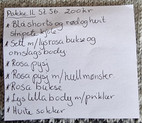 Pakke 11 St. 56 200kr
• Blå shorts og rødlig hvit
stripete kjole
• Sett m/ rosa bukse og
omslagsbody
• Rosa pysj
• Rosa pysj m/ hullmønster
• Rosa bukse
• Lys lilla body m/prikker
• Hvite sokker